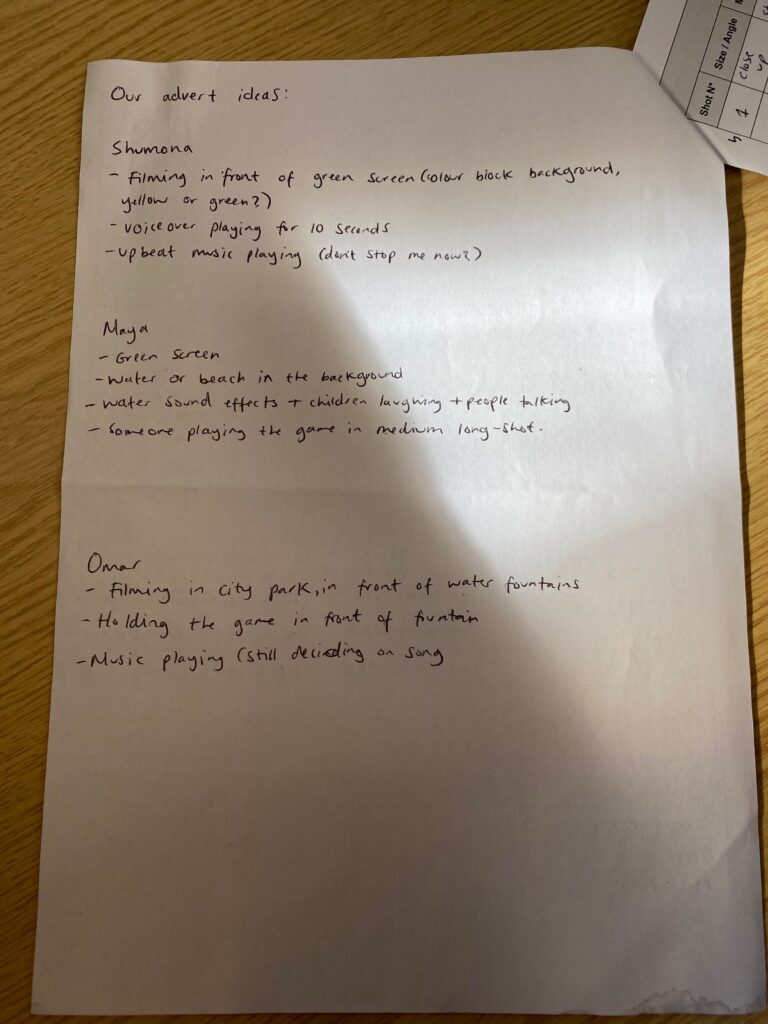 Our advert ideas:
Shumona
- Filming in front of green screen (colour block background,
yellow or green?)
- voiceover playing for 10 seconds
- upbeat music playing (don't stop me now?)
Maya
- Green screen
- water or beach in the background
- water sound effects + children laughing + people talking
- someone playing the game in medium long-shot.
Omar
- Filming in city park, in front of water fountains
- Holding the game in front of fountain
- Music playing (still deciding on song
Shot N°
Size / Angle
1
close
up